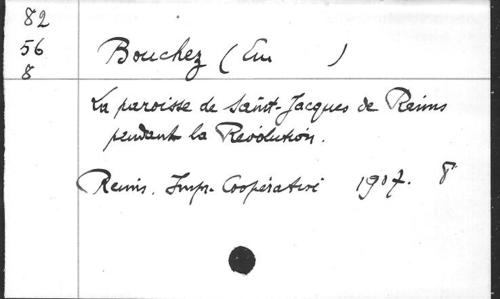 82
56
8
Bouchez (Em )
La paroisse de Saint-Jacques de Reims
pendant la Révolution.
Reims. Impr. Coopérative 1907. 8°